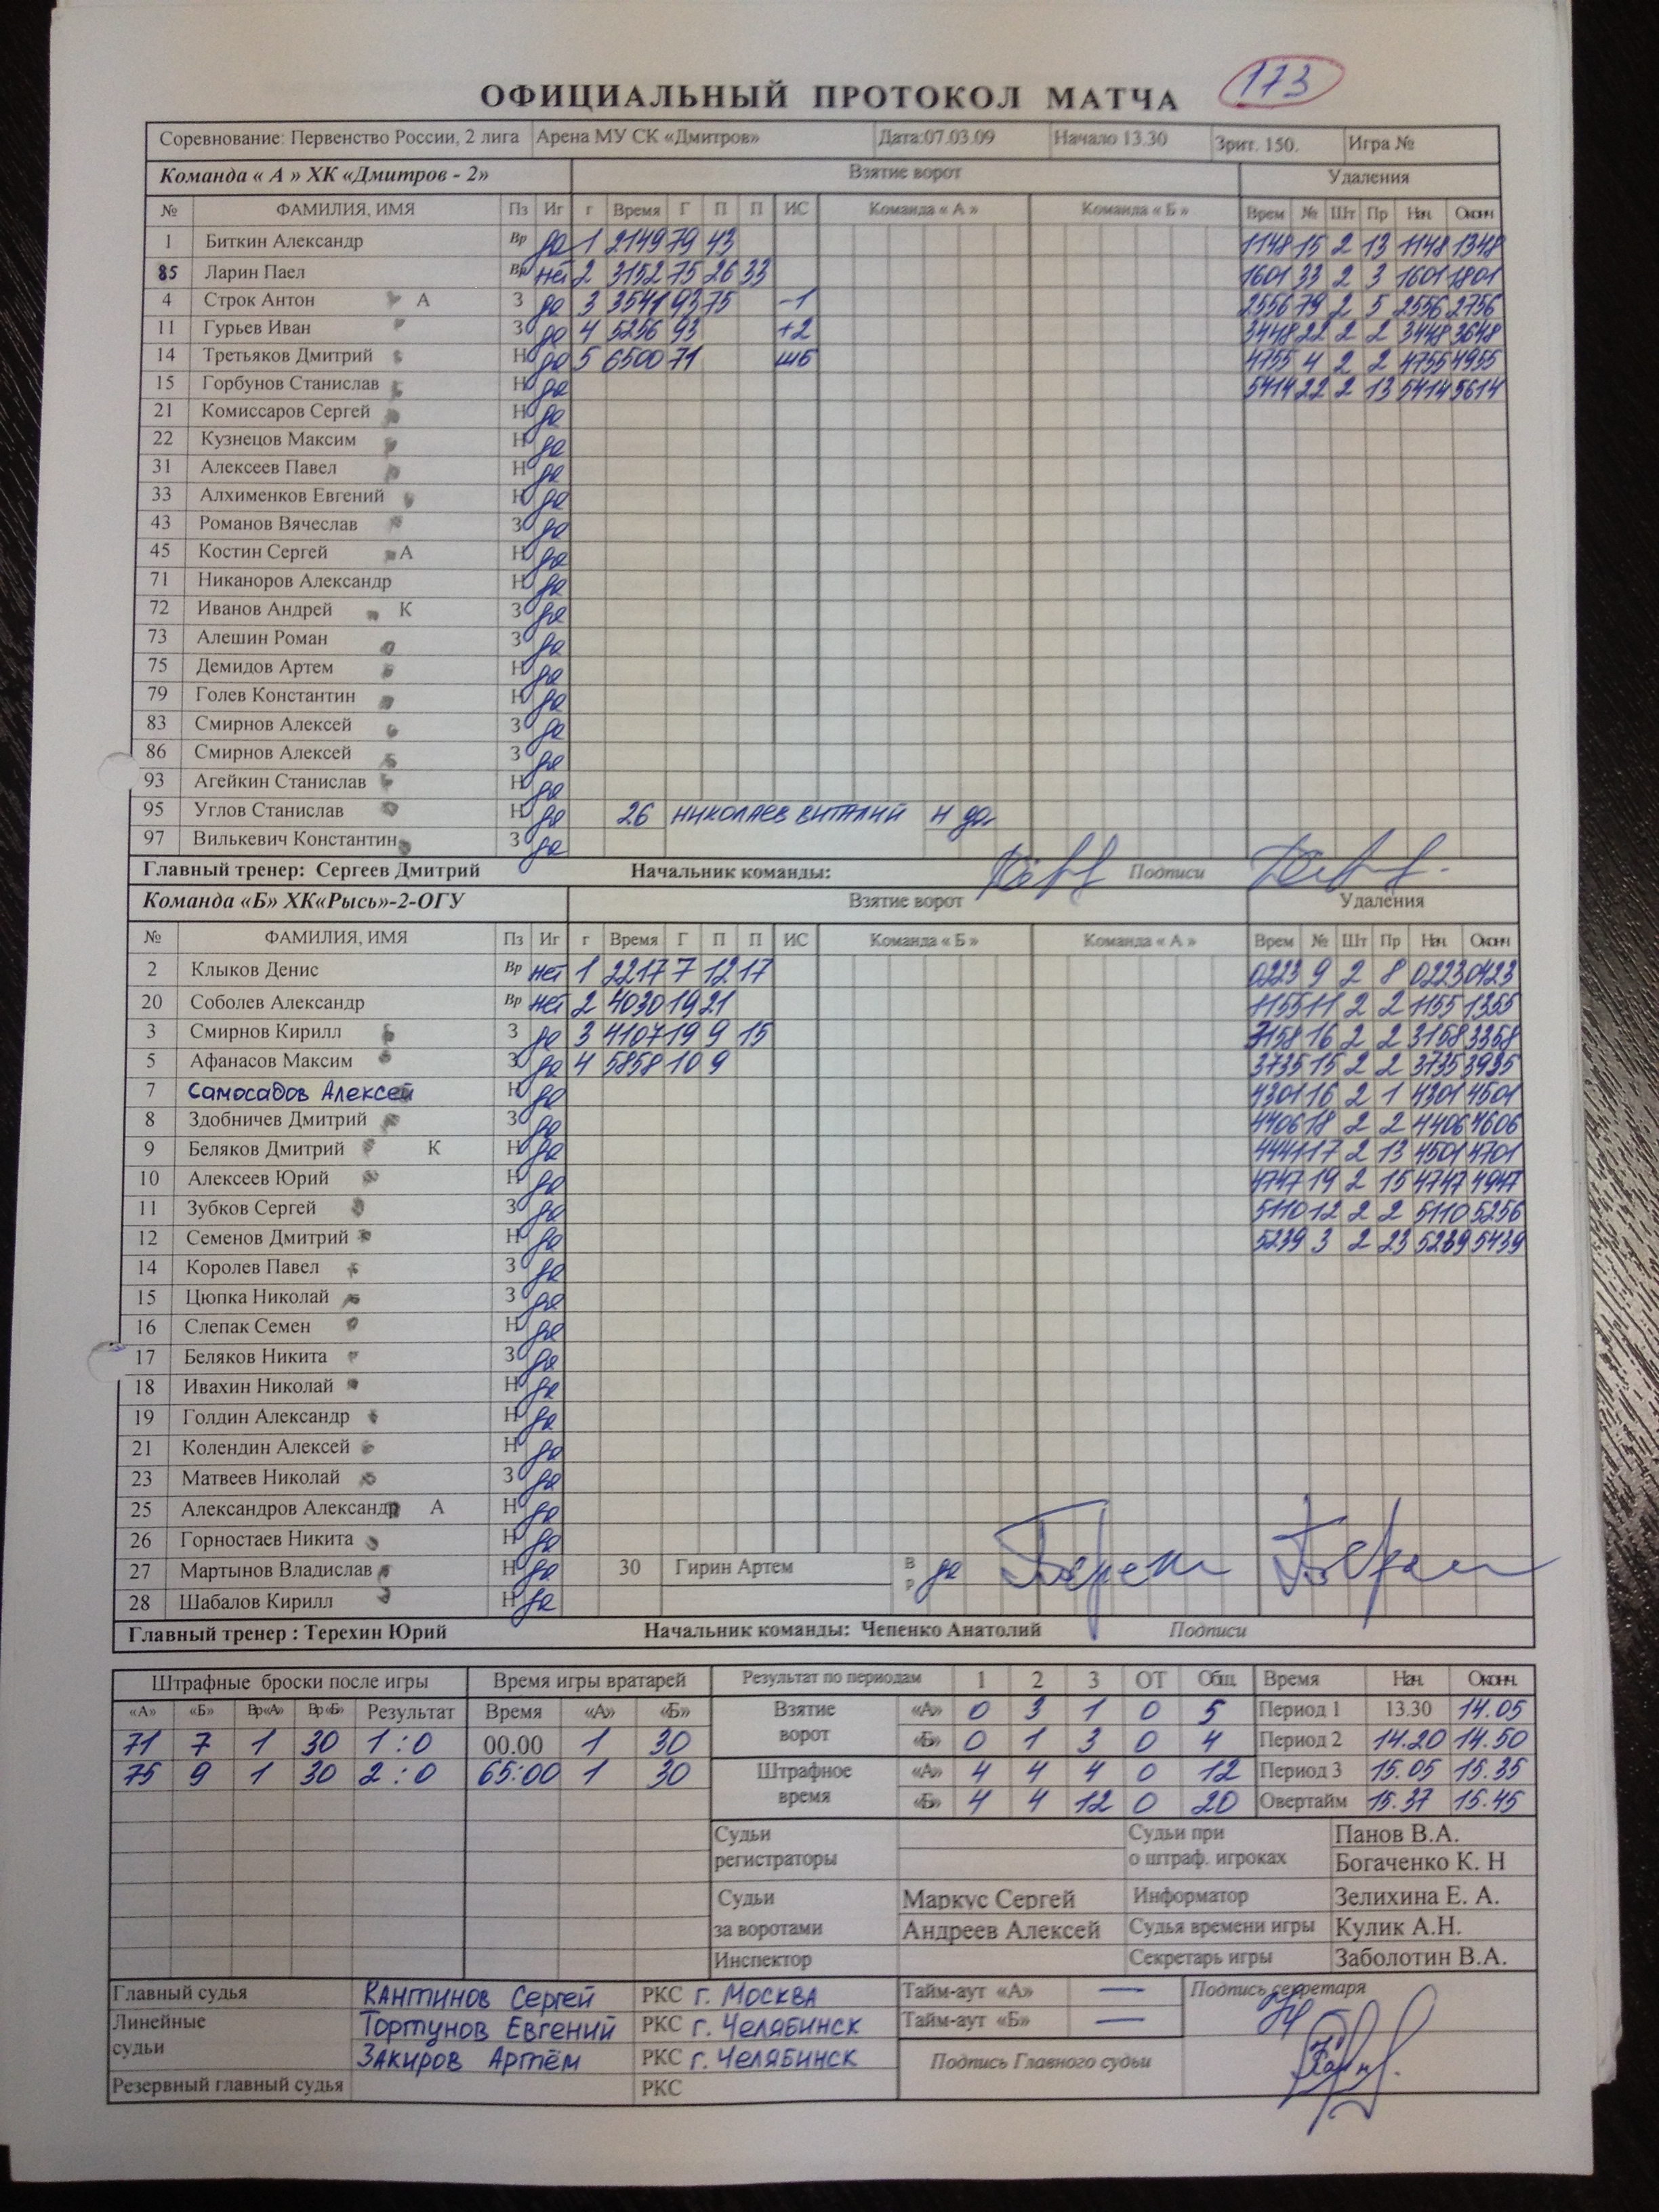 ОФИЦИАЛЬНЫЙ ПРОТОКОЛ МАТЧА 173
Соревнование: Первенство России, 2 лига Арена МУ СК «Дмитров» Дата:07.03.09 Начало 13.30 Зрит. 150. Игра №
Команда « А » ХК «Дмитров - 2» Взятие ворот Удаления
№ ФАМИЛИЯ, ИМЯ Пз Иг г Время Г П П ИС Команда « А » Команда « Б » Врем № Шт Пр Нач. Оконч
1 Биткин Александр Вр да 1 2149 79 43 1148 15 2 13 1148 1348
85 Ларин Паел Вр нет 2 3152 75 26 33 1601 33 2 3 1601 1801
4 Строк Антон А З да 3 3541 93 75 -1 2556 79 2 5 2556 2756
11 Гурьев Иван З да 4 5256 93 +2 3448 22 2 2 3448 3648
14 Третьяков Дмитрий Н да 5 6500 71 шб 4755 4 2 2 4755 4955
15 Горбунов Станислав Н да 5414 22 2 13 5414 5614
21 Комиссаров Сергей Н да
22 Кузнецов Максим Н да
31 Алексеев Павел Н да
33 Алхименков Евгений Н да
43 Романов Вячеслав З да
45 Костин Сергей А Н да
71 Никаноров Александр Н да
72 Иванов Андрей К З да
73 Алешин Роман З да
75 Демидов Артем Н да
79 Голев Константин Н да
83 Смирнов Алексей З да
86 Смирнов Алексей З да
93 Агейкин Станислав Н да
95 Углов Станислав Н да 26 НИКОЛАЕВ ВИТАЛИЙ Н да
97 Вилькевич Константин З да
Главный тренер: Сергеев Дмитрий Начальник команды: Подписи
Команда «Б» ХК«Рысь»-2-ОГУ Взятие ворот Удаления
№ ФАМИЛИЯ, ИМЯ Пз Иг г Время Г П П ИС Команда « Б » Команда « А » Врем № Шт Пр Нач. Оконч
2 Клыков Денис Вр нет 1 2217 7 12 17 0223 9 2 8 0223 0423
20 Соболев Александр Вр нет 2 4030 19 21 1155 11 2 2 1155 1355
3 Смирнов Кирилл З да 3 4107 19 9 15 3158 16 2 2 3158 3358
5 Афанасов Максим З да 4 5858 10 9 3735 15 2 2 3735 3935
7 Самосадов Алексей Н да 4301 16 2 1 4301 4501
8 Здобничев Дмитрий З да 4406 18 2 2 4406 4606
9 Беляков Дмитрий К Н да 4441 17 2 13 4501 4701
10 Алексеев Юрий Н да 4747 19 2 15 4747 4947
11 Зубков Сергей З да 5110 12 2 2 5110 5256
12 Семенов Дмитрий Н да 5239 3 2 23 5239 5439
14 Королев Павел З да
15 Цюпка Николай З да
16 Слепак Семен Н да
17 Беляков Никита З да
18 Ивахин Николай Н да
19 Голдин Александр Н да
21 Колендин Алексей Н да
23 Матвеев Николай З да
25 Александров Александр А Н да
26 Горностаев Никита Н да
27 Мартынов Владислав Н да 30 Гирин Артем Вр да
28 Шабалов Кирилл Н да
Главный тренер : Терехин Юрий Начальник команды: Чепенко Анатолий Подписи
Штрафные броски после игры Время игры вратарей Результат по периодам 1 2 3 ОТ Общ. Время Нач. Оконч.
«А» «Б» Вр«А» Вр«Б» Результат Время «А» «Б» Взятие ворот «А» 0 3 1 0 5 Период 1 13.30 14.05
71 7 1 30 1:0 00.00 1 30 «Б» 0 1 3 0 4 Период 2 14.20 14.50
75 9 1 30 2:0 65:00 1 30 Штрафное время «А» 4 4 4 0 12 Период 3 15.05 15.35
«Б» 4 4 12 0 20 Овертайм 15.37 15.45
Судьи Судьи при Панов В.А.
регистраторы о штраф. игроках Богаченко К. Н
Судьи Маркус Сергей Информатор Зелихина Е. А.
за воротами Андреев Алексей Судья времени игры Кулик А.Н.
Инспектор Секретарь игры Заболотин В.А.
Главный судья КАНТИНОВ Сергей РКС г. МОСКВА Тайм-аут «А» — Подпись секретаря
Линейные ТОРТУНОВ ЕВГЕНИЙ РКС г. ЧЕЛЯБИНСК Тайм-аут «Б» —
судьи ЗАКИРОВ АРТЁМ РКС г. ЧЕЛЯБИНСК Подпись Главного судьи
Резервный главный судья РКС